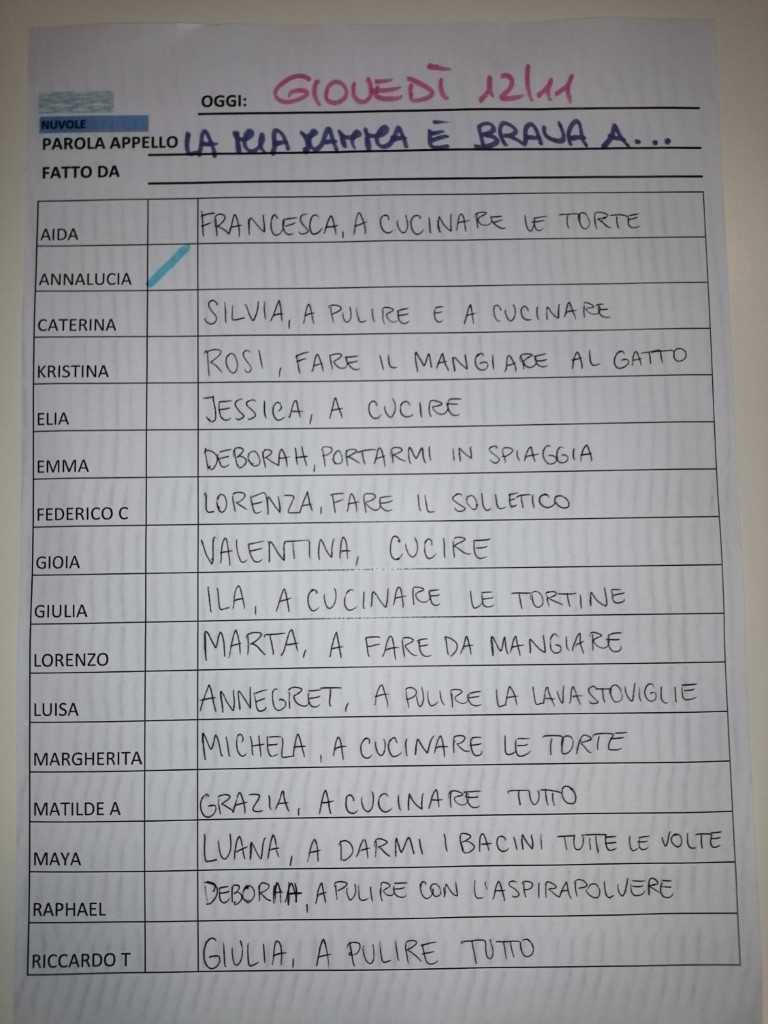 OGGI: GIOVEDÌ 12/11
NUVOLE
PAROLA APPELLO LA MIA MAMMA È BRAVA A...
FATTO DA
AIDA FRANCESCA, A CUCINARE LE TORTE
ANNALUCIA
CATERINA SILVIA, A PULIRE E A CUCINARE
KRISTINA ROSI, FARE IL MANGIARE AL GATTO
ELIA JESSICA, A CUCIRE
EMMA DEBORAH, PORTARMI IN SPIAGGIA
FEDERICO C LORENZA, FARE IL SOLLETICO
GIOIA VALENTINA, CUCIRE
GIULIA ILA, A CUCINARE LE TORTINE
LORENZO MARTA, A FARE DA MANGIARE
LUISA ANNEGRET, A PULIRE LA LAVASTOVIGLIE
MARGHERITA MICHELA, A CUCINARE LE TORTE
MATILDE A GRAZIA, A CUCINARE TUTTO
MAYA LUANA, A DARMI I BACINI TUTTE LE VOLTE
RAPHAEL DEBORAH, A PULIRE CON L'ASPIRAPOLVERE
RICCARDO T GIULIA, A PULIRE TUTTO